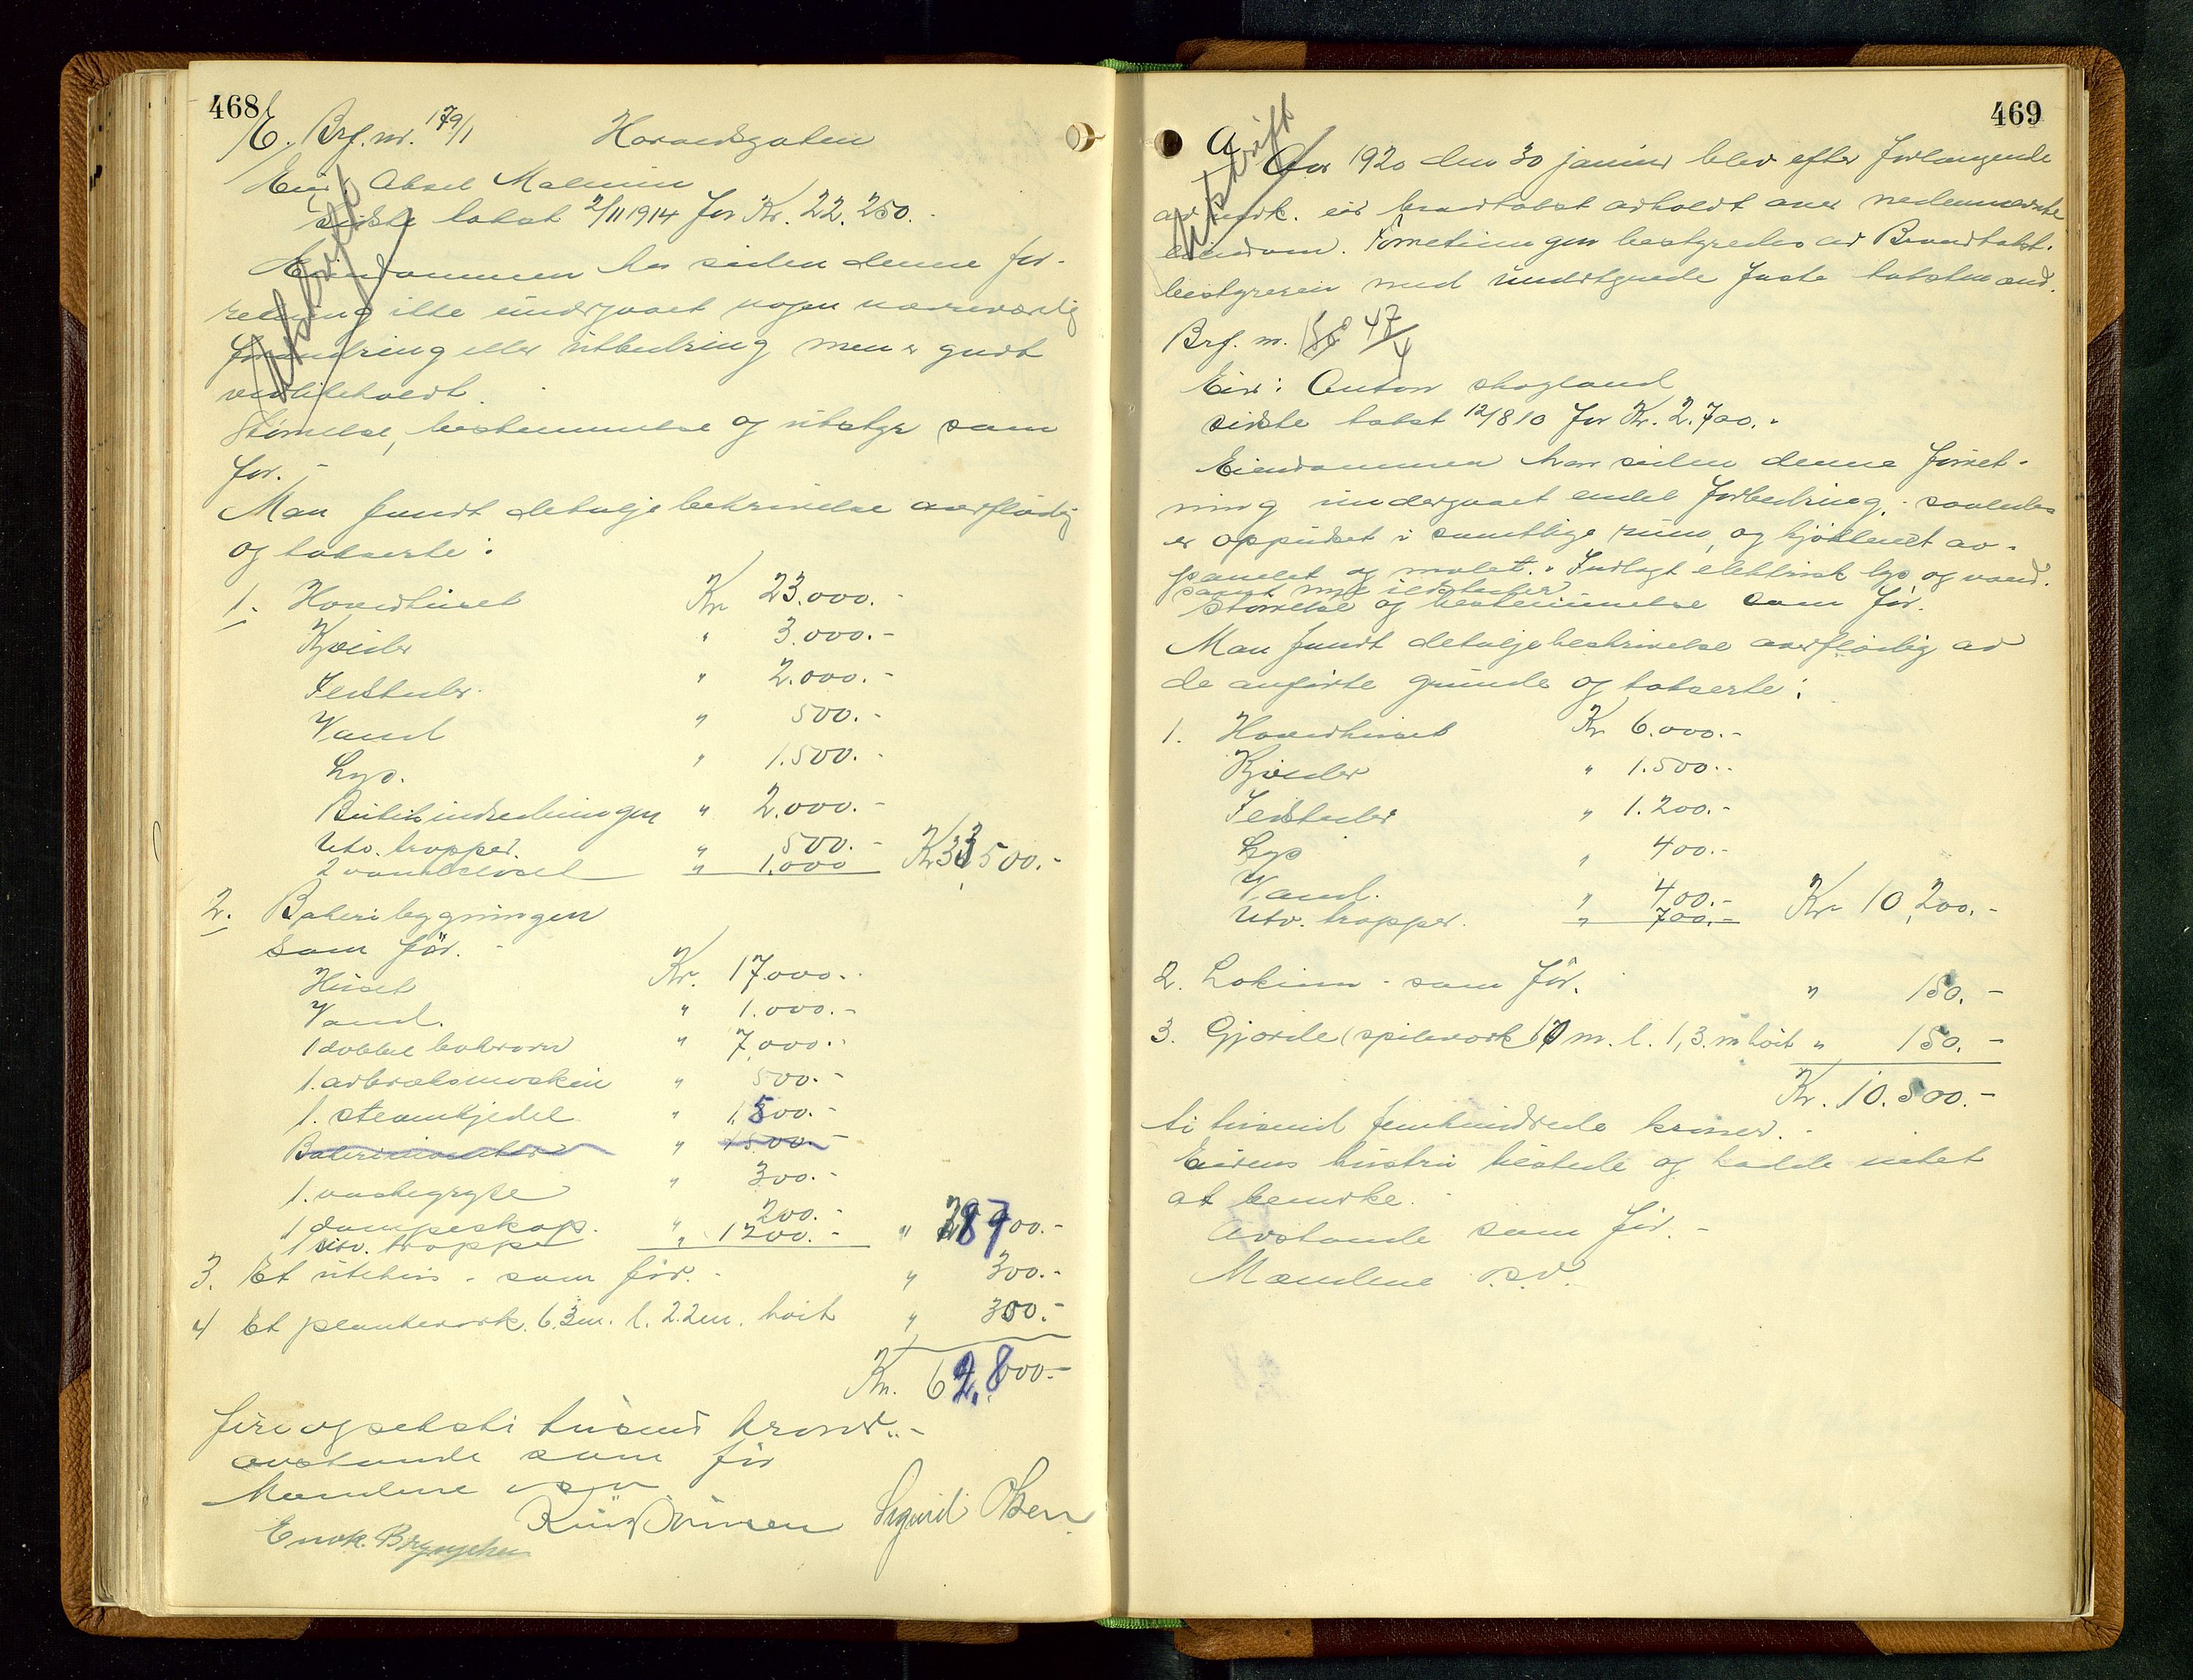 468
E. Brf. nr. 179/1 Hovedsgaten
Eier: Aksel Malmin
Sidste takst 2/11 1914 for Kr. 22.250.-
Utskrift
Eiendommen har siden denne for-
retning ikke undergaaet nogen nævneværdig
forandring eller utbedring men er godt
vedlikeholdt.
Størrelse, bestemmelse og utstyr som
før.-
Man fandt detaljebeskrivelse overflødig
og takserte:
1. Hovedhuset Kr 23.000.-
Kjelder " 3.000.-
Ildsteder. " 2.000.-
Vand " 500.-
Lys. " 1.500.-
Butikindredningen " 2.000.-
Utv. trapper. " 500.-
2 vandkloset " 1.000 Kr 33.500.-
2. Bakeribygningen
som før.-
Huset Kr. 17.000.-
Vand. " 1.000.-
1 dobbel bakerovn " 7.000.-
1. arbeidsmaskin " 500.-
1. steamkjedel " 1.500.-
Bakeriinventar " 1.500.-
1. vaskegryte " 300.-
1 dampeskap. " 200.-
1 utv. trappe " 1200.- " 28700.-
3. Et uthus - som før.- " 300.-
4 Et plankeverk. 6.3m. l. 2.2m. høit " 300.-
Kr. 62.800.-
fire og seksti tusend kroner.-
avstande som før
Mændene o.s.v.
Sigurd Olsen
Enok. Bryngelsen
469
A
Utskrift
Aar 1920 den 30 januar blev efter forlangende
av vedk. eier brandtakst avholdt over nedennævnte
eiendom. Forretningen bestyredes av Brandtakst.
bestyreren med undertegnede faste takstmænd.
Brf. nr. 47/4
Eier: Anton Skogland
sidste takst 12/8 10 for Kr. 2.700.-
Eiendommen har siden denne forret-
ning undergaaet endel forbedring, - saaledes
er oppudset i samtlige rum, og kjøkkenet av-
panelet og malet. - Indlagt elektrisk lys og vand.
samt nye ildsteder
Størrelse og bestemmelse som før.
Man fandt detaljebeskrivelse overflødig av
de anførte grunde og takserte:
1. Hovedhuset Kr 6.000.-
Kjelder " 1.500.-
Ildsteder " 1.200.-
Lys " 400.-
Vand. " 400.-
Utv. trapper. " 700.- Kr 10,200.-
2. Lokum - som før. " 150.-
3. Gjærde (spileverk 17 m. l. 1,3. m høit " 150.-
Kr. 10.500.-
ti tusend femhundrede kroner.-
Eierens hustru tilstede og hadde intet
at bemerke.-
Avstande som før.-
Mændene o.s.v.